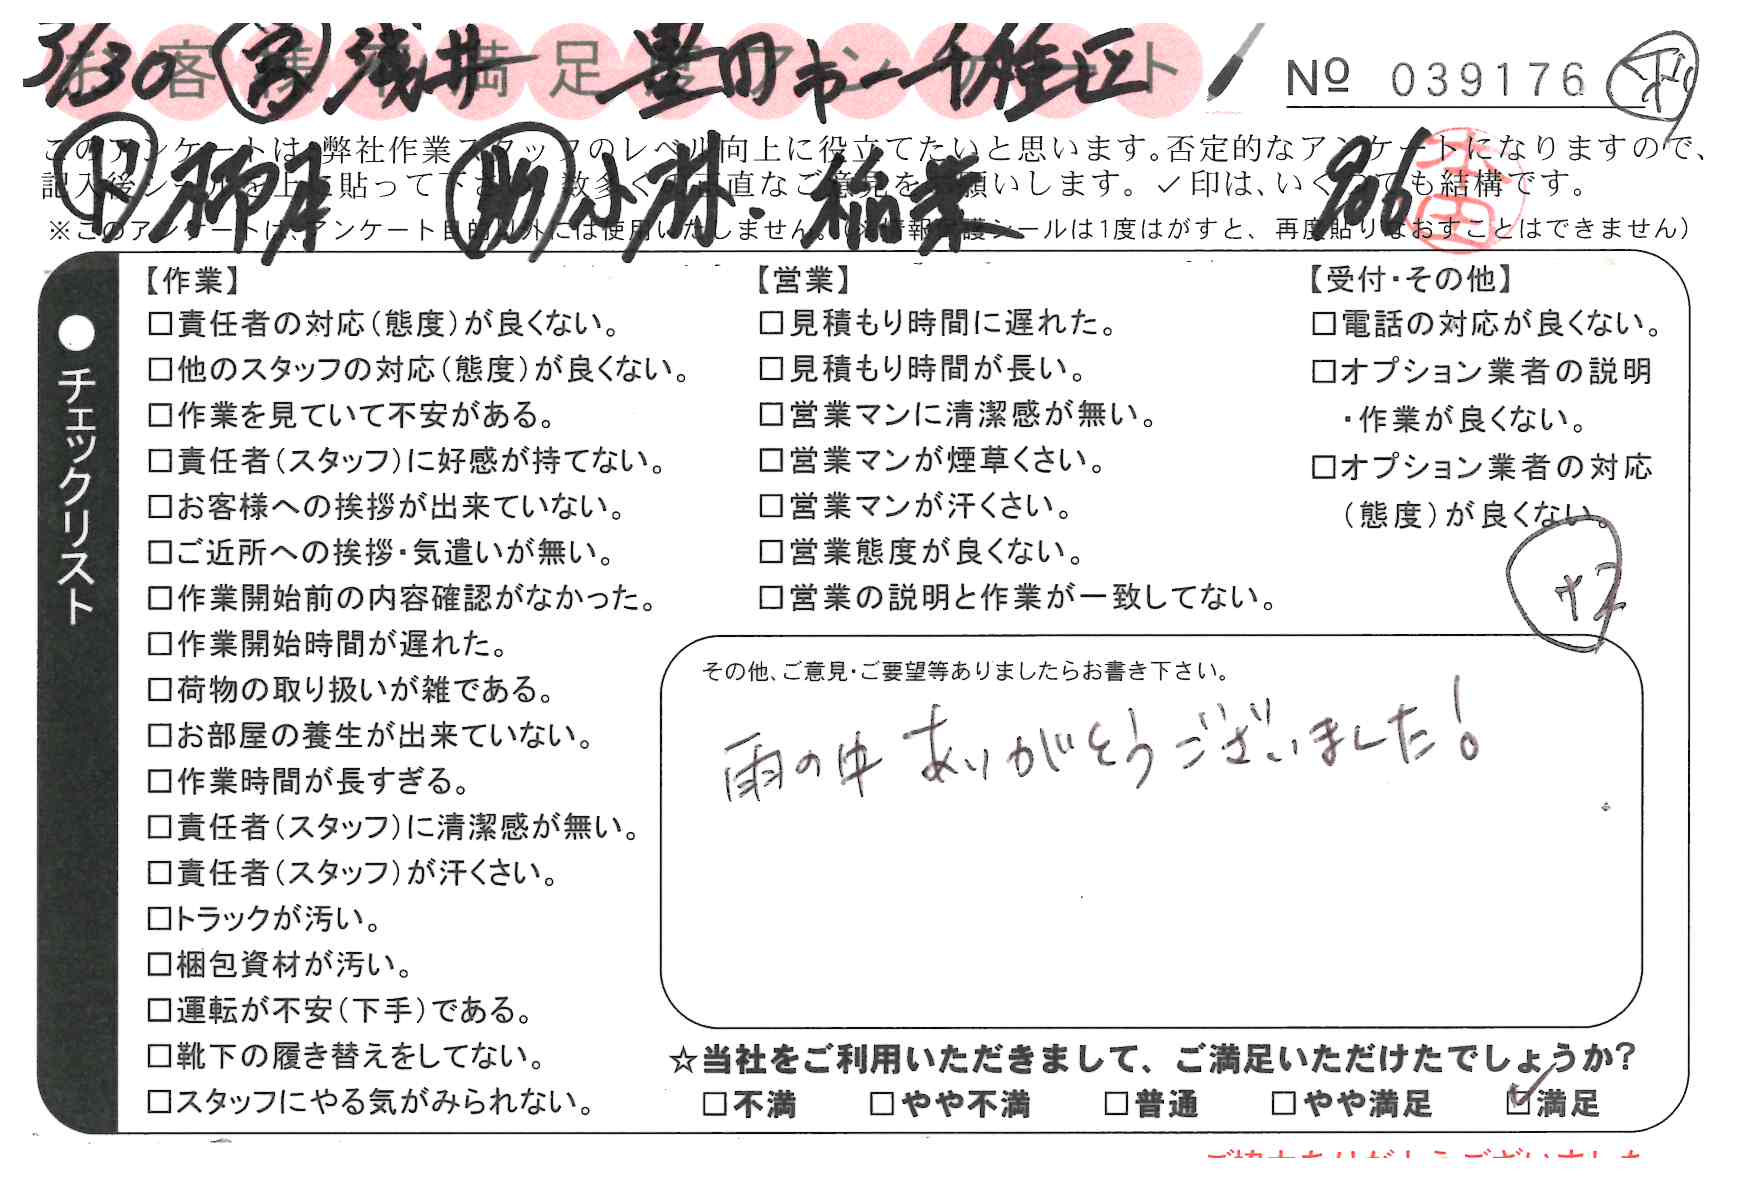 3/30 浅井
お客様不満足度アンケート
№ 039176
このアンケートは、弊社作業スタッフのレベル向上に役立てたいと思います。否定的なアンケートになりますので、
記入後シールを上に貼って下さい。数多くの正直なご意見をお願いします。✓印は、いくつでも結構です。
※このアンケートは、アンケート目的以外には使用いたしません。(※情報保護シールは1度はがすと、再度貼りなおすことはできません)
小林・稲葉
●チェックリスト
【作業】
□責任者の対応(態度)が良くない。
□他のスタッフの対応(態度)が良くない。
□作業を見ていて不安がある。
□責任者(スタッフ)に好感が持てない。
□お客様への挨拶が出来ていない。
□ご近所への挨拶・気遣いが無い。
□作業開始前の内容確認がなかった。
□作業開始時間が遅れた。
□荷物の取り扱いが雑である。
□お部屋の養生が出来ていない。
□作業時間が長すぎる。
□責任者(スタッフ)に清潔感が無い。
□責任者(スタッフ)が汗くさい。
□トラックが汚い。
□梱包資材が汚い。
□運転が不安(下手)である。
□靴下の履き替えをしてない。
□スタッフにやる気がみられない。
【営業】
□見積もり時間に遅れた。
□見積もり時間が長い。
□営業マンに清潔感が無い。
□営業マンが煙草くさい。
□営業マンが汗くさい。
□営業態度が良くない。
□営業の説明と作業が一致してない。
【受付・その他】
□電話の対応が良くない。
□オプション業者の説明
・作業が良くない。
□オプション業者の対応
(態度)が良くない。
その他、ご意見・ご要望等ありましたらお書き下さい。
雨の中ありがとうございました!
☆当社をご利用いただきまして、ご満足いただけたでしょうか?
□不満 □やや不満 □普通 □やや満足 ☑満足
ご協力ありがとうございました